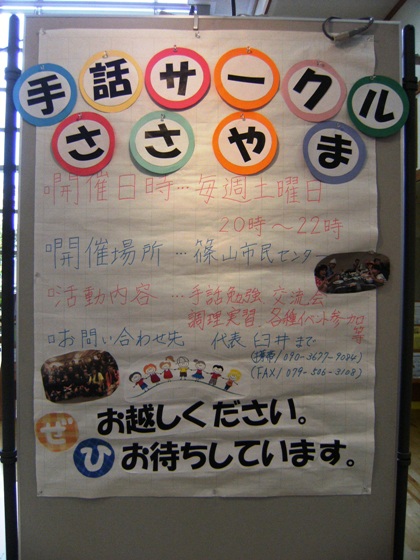 手話サークル
ささやま
開催日時…毎週土曜日
20時～22時
開催場所…篠山市民センター
活動内容…手話勉強 交流会
調理実習、各種イベント参加等
お問い合わせ先 代表 臼井まで
(携帯/090-3677-9084)
(FAX/079-506-3108)
ぜひ
お越しください。
お待ちしています。